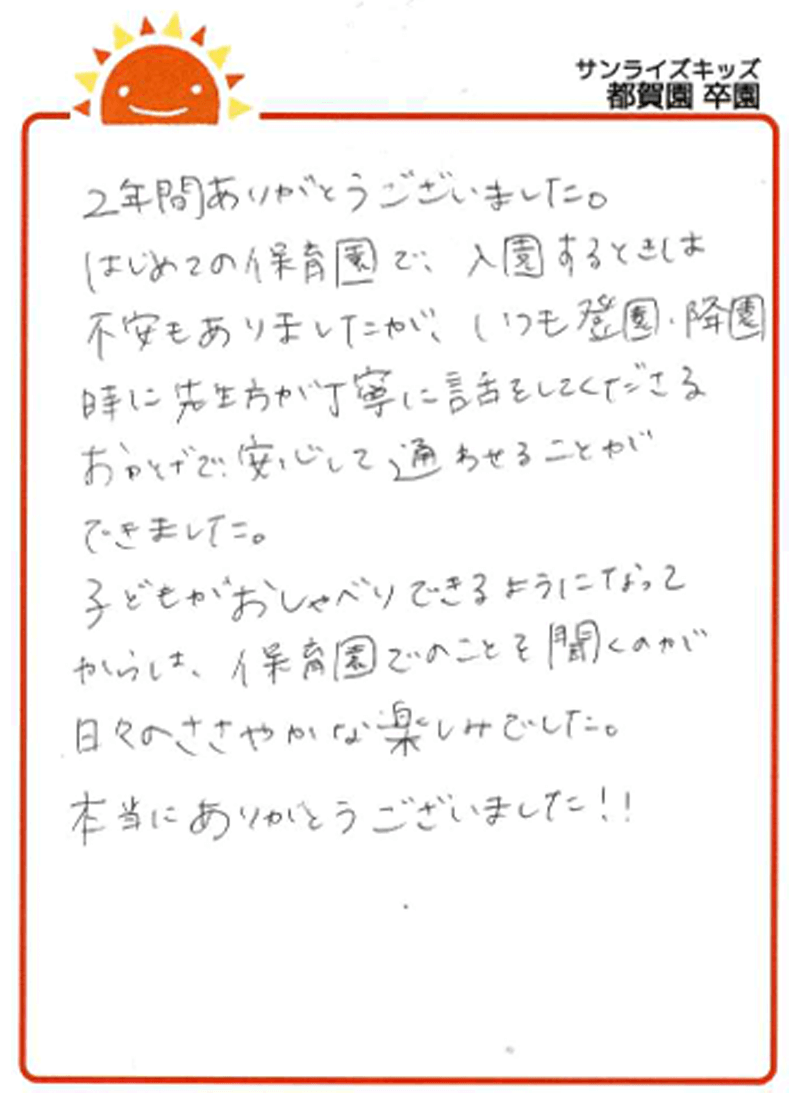 サンライズキッズ
都賀園 卒園
2年間ありがとうございました。
はじめての保育園で、入園するときは
不安もありましたが、いつも登園・降園
時に先生方が丁寧に話をしてくださる
おかげで、安心して通わせることが
できました。
子どもがおしゃべりできるようになって
からは、保育園でのことを聞くのが
日々のささやかな楽しみでした。
本当にありがとうございました!!